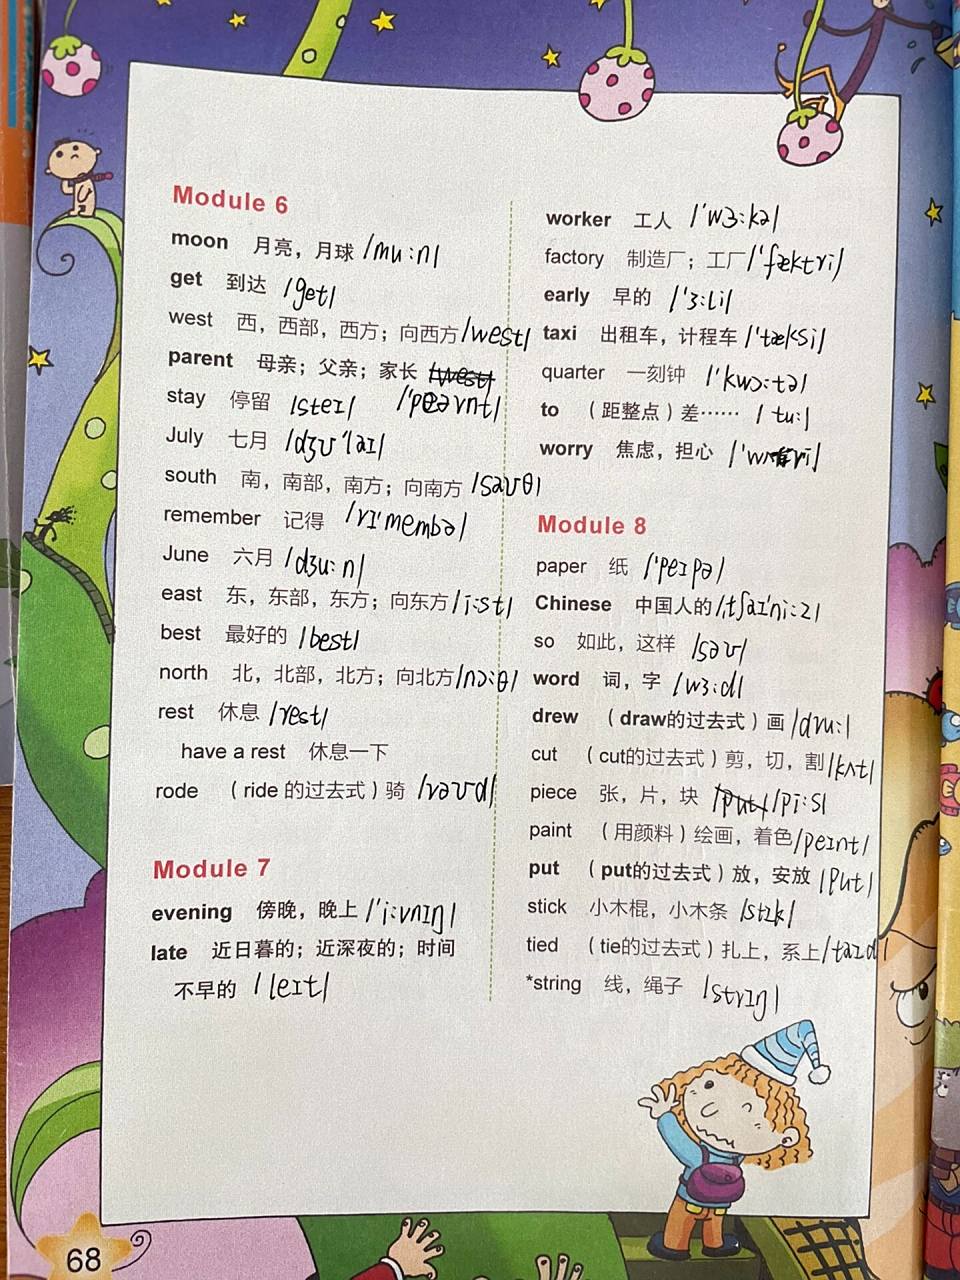 Module 6
moon 月亮，月球 /mu:n/
get 到达 /get/
west 西，西部，西方；向西方 /west/
parent 母亲；父亲；家长
stay 停留 /steɪ/ /'peərənt/
July 七月 /dʒʊ'laɪ/
south 南，南部，南方；向南方 /saʊθ/
remember 记得 /rɪ'membə/
June 六月 /dʒu:n/
east 东，东部，东方；向东方 /i:st/
best 最好的 /best/
north 北，北部，北方；向北方 /nɔ:θ/
rest 休息 /rest/
have a rest 休息一下
rode （ride 的过去式）骑 /rəʊd/
Module 7
evening 傍晚，晚上 /'i:vnɪŋ/
late 近日暮的；近深夜的；时间
不早的 /leɪt/
worker 工人 /'wɜ:kə/
factory 制造厂；工厂 /'fæktri/
early 早的 /'ɜ:li/
taxi 出租车，计程车 /'tæksi/
quarter 一刻钟 /'kwɔ:tə/
to （距整点）差…… /tu:/
worry 焦虑，担心
Module 8
paper 纸 /'peɪpə/
Chinese 中国人的 /,tʃaɪ'ni:z/
so 如此，这样 /səʊ/
word 词，字 /wɜ:d/
drew （draw的过去式）画 /dru:/
cut （cut的过去式）剪，切，割 /kʌt/
piece 张，片，块 /pi:s/
paint （用颜料）绘画，着色 /peɪnt/
put （put的过去式）放，安放 /put/
stick 小木棍，小木条 /stɪk/
tied （tie的过去式）扎上，系上 /taɪd
*string 线，绳子 /strɪŋ/
68